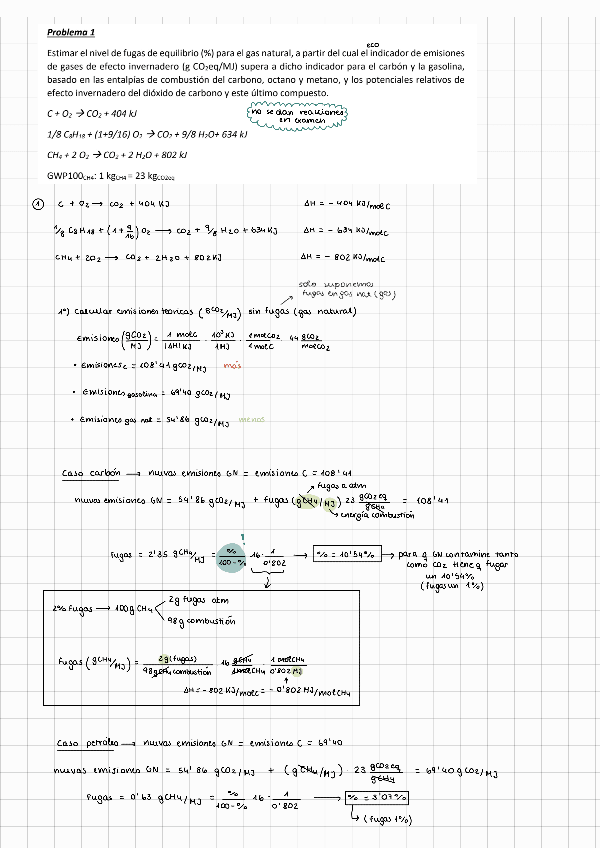 Problema 1
eco
Estimar el nivel de fugas de equilibrio (%) para el gas natural, a partir del cual el indicador de emisiones
de gases de efecto invernadero (g CO₂eq/MJ) supera a dicho indicador para el carbón y la gasolina,
basado en las entalpías de combustión del carbono, octano y metano, y los potenciales relativos de
efecto invernadero del dióxido de carbono y este último compuesto.
C + O₂ → CO₂ + 404 kJ
no se dan reacciones
en examen
1/8 C₈H₁₈ + (1+9/16) O₂ → CO₂ + 9/8 H₂O+ 634 kJ
CH₄ + 2 O₂ → CO₂ + 2 H₂O + 802 kJ
GWP100CH₄: 1 kgCH₄ = 23 kgCO2eq
① C + O₂ → CO₂ + 404 KJ ΔH = - 404 KJ/molC
1/8 C₈H₁₈ + (1+ 9/16) O₂ → CO₂ + 9/8 H₂O + 634 KJ ΔH = - 634 KJ/molC
CH₄ + 2O₂ → CO₂ + 2H₂O + 802 KJ ΔH = - 802 KJ/molC
solo suponemos
fugas en gas nat (gas)
1º) Calcular emisiones teóricas (gCO₂/MJ) sin fugas (gas natural)
Emisiones (gCO₂/MJ) = 1 molC/|ΔH| KJ · 10³ KJ/1MJ · 1 molCO₂/1 molC · 44 gCO₂/molCO₂
• Emisiones C = 108'91 gCO₂/MJ más
• Emisiones gasolina = 69'40 gCO₂/MJ
• Emisiones gas nat = 54'86 gCO₂/MJ menos
Caso carbón → nuevas emisiones GN = emisiones C = 108'91
fugas a atm
nuevas emisiones GN = 54'86 gCO₂/MJ + fugas (gCH₄/MJ) 23 gCO₂eq/gCH₄ = 108'91
energía combustión
!
Fugas = 2'35 gCH₄/MJ = %/100-% 16 · 1/0'802 → % = 10'54% → para q GN contamine tanto
como CO₂ tiene q fugar
un 10'54%
(fugas un 1%)
2% Fugas → 100g CH₄
2g fugas atm
98g combustión
Fugas (gCH₄/MJ) = 2g (fugas)/98gCH₄ combustión · 16 gCH₄/1molCH₄ · 1 molCH₄/0'802 MJ
ΔH = - 802 KJ/molC = - 0'802 MJ/molCH₄
Caso petróleo → nuevas emisiones GN = emisiones C = 69'40
nuevas emisiones GN = 54'86 gCO₂/MJ + (gCH₄/MJ) · 23 gCO₂eq/gCH₄ = 69'40 gCO₂/MJ
Fugas = 0'63 gCH₄/MJ = %/100-% 16 · 1/0'802 → % = 3'07%
(fugas 1%)